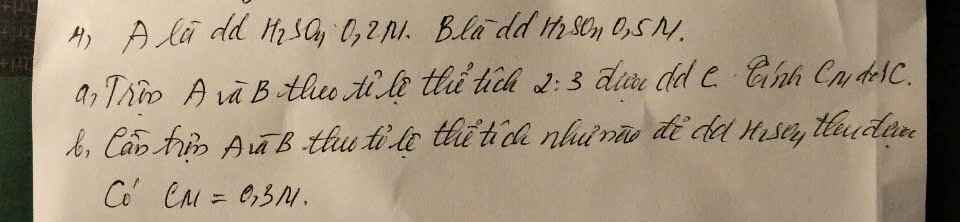 4, A là dd H2SO4 0,2M. B là dd H2SO4 0,5M.
a, Trộn A và B theo tỉ lệ thể tích 2:3 được dd C. Tính CM dd C.
b, Cần trộn A và B theo tỉ lệ thể tích như nào để dd H2SO4 thu được
Có CM = 0,3M.